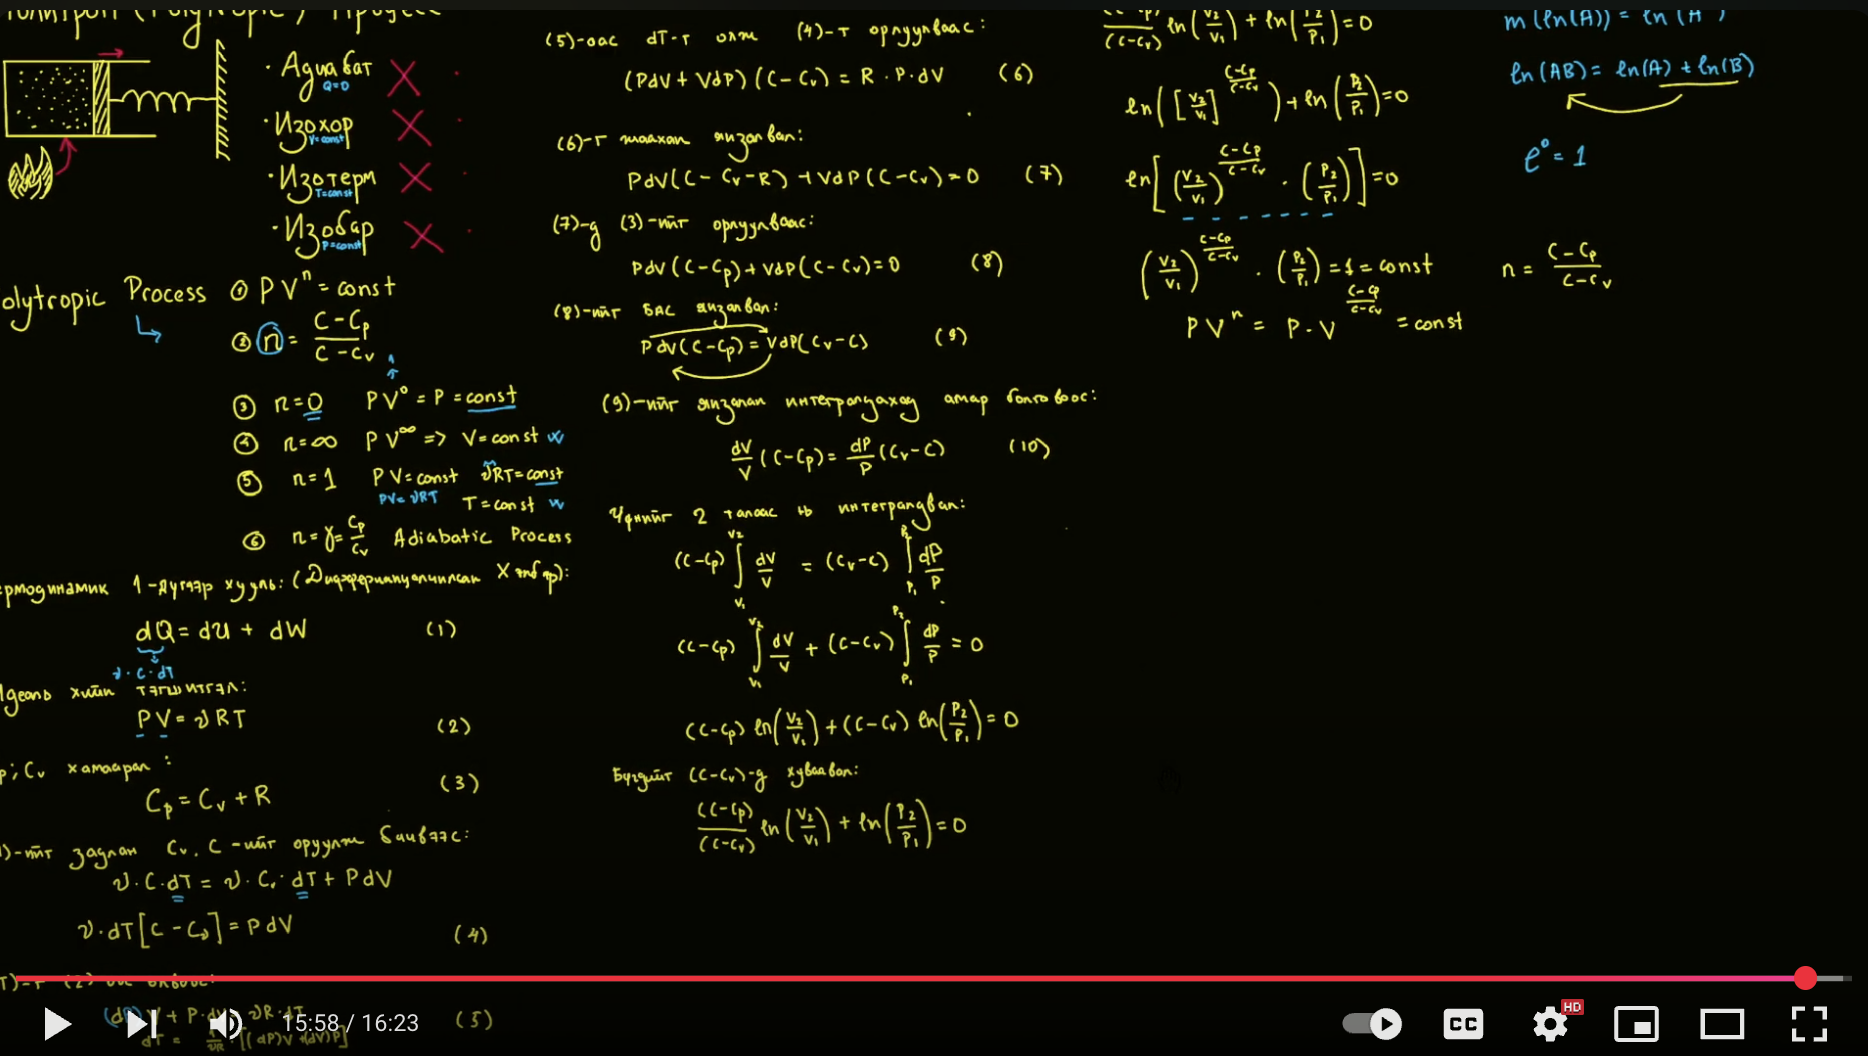 Политроп (Polytropic) Процесс
· Адиабат
Q=0
· Изохор
V=const
· Изотерм
T=const
· Изобар
P=const
olytropic Process ① PVⁿ = const
② n = (C-Cp)/(C-Cv)
③ n=0 PV⁰ = P = const
④ n=∞ PV^∞ => V=const
⑤ n=1 PV=const νRT=const
PV=νRT T=const
⑥ n=γ=Cp/Cv Adiabatic Process
ермодинамик 1-дүгээр хууль: (Дифференциалчилсан Хэлбэр):
dQ = dU + dW (1)
ν·C·dT
Идеаль хийн тэгшитгэл:
PV = νRT (2)
p; Cv хамаарал:
Cp = Cv + R (3)
)-ийг задлан Cv, C -ийг оруулж бичвээс:
ν·C·dT = ν·Cv·dT + PdV
ν·dT[C - Cv] = PdV (4)
(5)
(5)-аас dT-г олж (4)-т орлуулваас:
(PdV + VdP)(C-Cv) = R·P·dV (6)
(6)-г жаахан янзалвал:
PdV(C-Cv-R) + VdP(C-Cv) = 0 (7)
(7)-д (3)-ийг орлуулваас:
PdV(C-Cp) + VdP(C-Cv) = 0 (8)
(8)-ийг бас янзалвал:
PdV(C-Cp) = VdP(Cv-C) (9)
(9)-ийг янзалан интегралдахад амар болговоос:
dV/V (C-Cp) = dP/P (Cv-C) (10)
Үүнийг 2 талаас нь интегралдвал:
(C-Cp) ∫_{V₁}^{V₂} dV/V = (Cv-C) ∫_{P₁}^{P₂} dP/P
(C-Cp) ∫_{V₁}^{V₂} dV/V + (C-Cv) ∫_{P₁}^{P₂} dP/P = 0
(C-Cp) ln(V₂/V₁) + (C-Cv) ln(P₂/P₁) = 0
Бүгдийг (C-Cv)-д хуваавал:
(C-Cp)/(C-Cv) ln(V₂/V₁) + ln(P₂/P₁) = 0
(C-Cp)/(C-Cv) ln(V₂/V₁) + ln(P₂/P₁) = 0
ln([V₂/V₁]^{(C-Cp)/(C-Cv)}) + ln(P₂/P₁) = 0
ln[(V₂/V₁)^{(C-Cp)/(C-Cv)} · (P₂/P₁)] = 0
(V₂/V₁)^{(C-Cp)/(C-Cv)} · (P₂/P₁) = 1 = const
n = (C-Cp)/(C-Cv)
PVⁿ = P·V^{(C-Cp)/(C-Cv)} = const
m(ln(A)) = ln(A
ln(AB) = ln(A) + ln(B)
e⁰ = 1
15:58 / 16:23
CC
HD